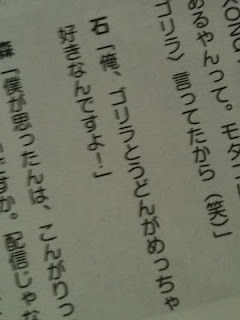 KONG
めるやんって。モダニ
ゴリラ〉言ってたから(笑)」
石「俺、ゴリラとうどんがめっちゃ
好きなんですよ!」
森「僕が思ったんは、こんがりっ
すか。配信じゃな